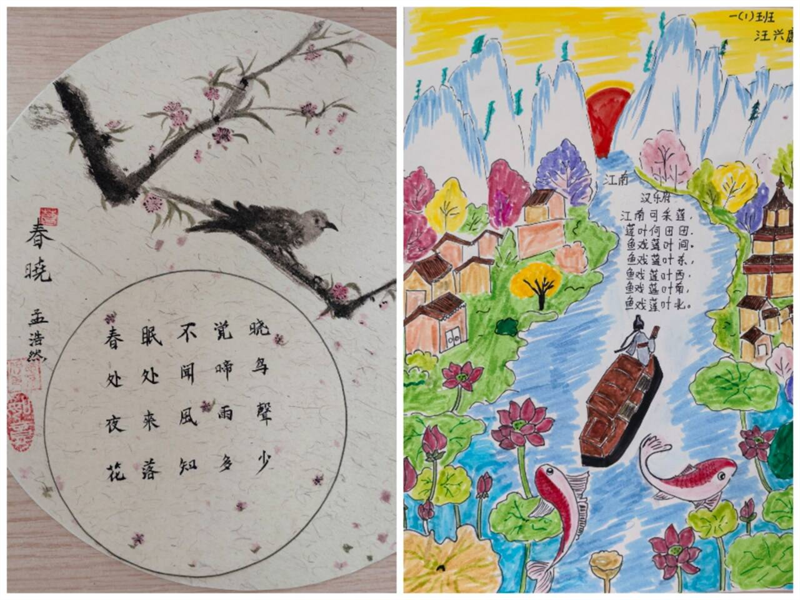 春晓
孟浩然
春眠不觉晓
处处闻啼鸟
夜来風雨聲
花落知多少
一(1)班
汪兴
江南
汉乐府
江南可采莲，
莲叶何田田。
鱼戏莲叶间。
鱼戏莲叶东，
鱼戏莲叶西，
鱼戏莲叶南，
鱼戏莲叶北。